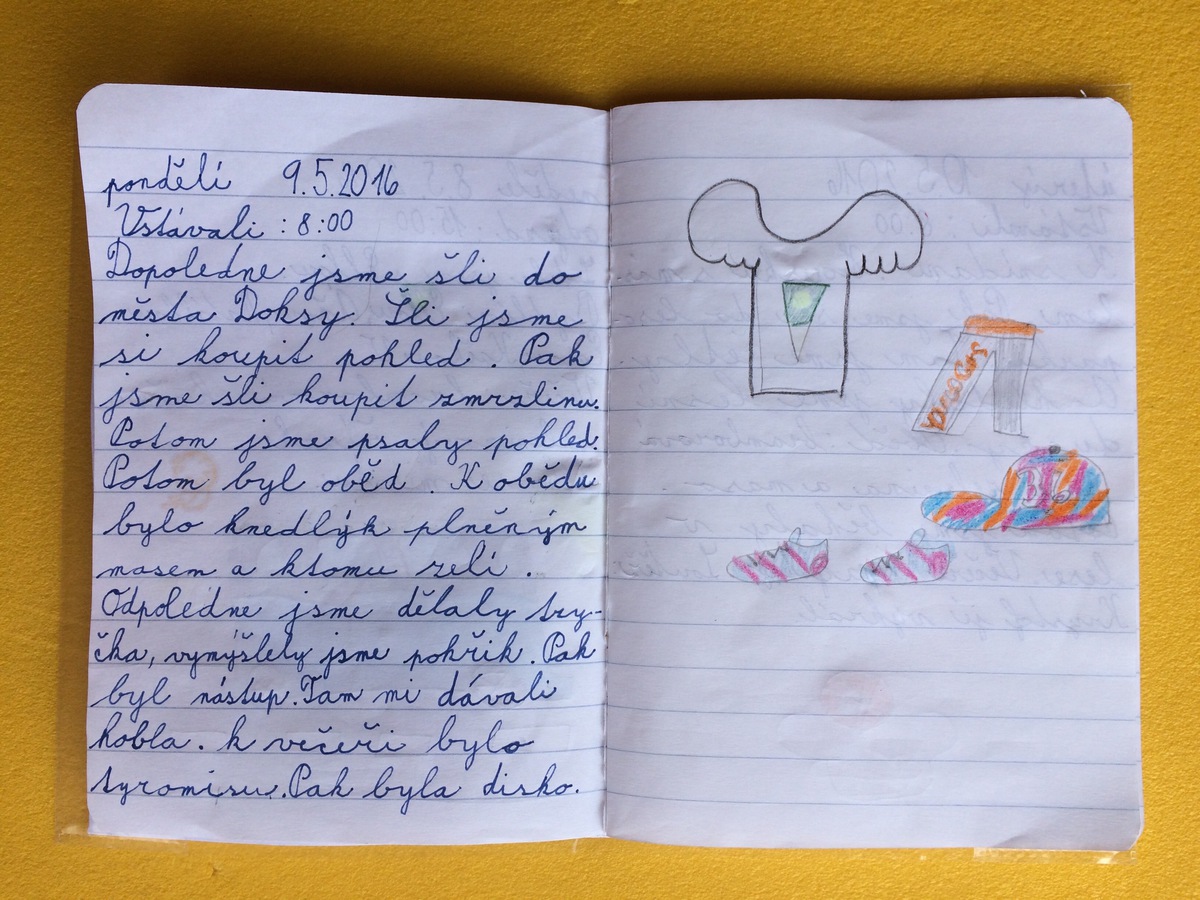 pondělí 9.5.2016
Vstávali : 8:00
Dopoledne jsme šli do
města Doksy. Šli jsme
si koupit pohled. Pak
jsme šli koupit zmrzlinu.
Potom jsme psaly pohled.
Potom byl oběd. K obědu
bylo knedlýk plněným
masem a ktomu zelí.
Odpoledne jsme dělaly try-
čka, vymýšlely jsme pokřik. Pak
byl nástup. Tam mi dávali
hobla. k večeři bylo
tyromisu. Pak byla disko.